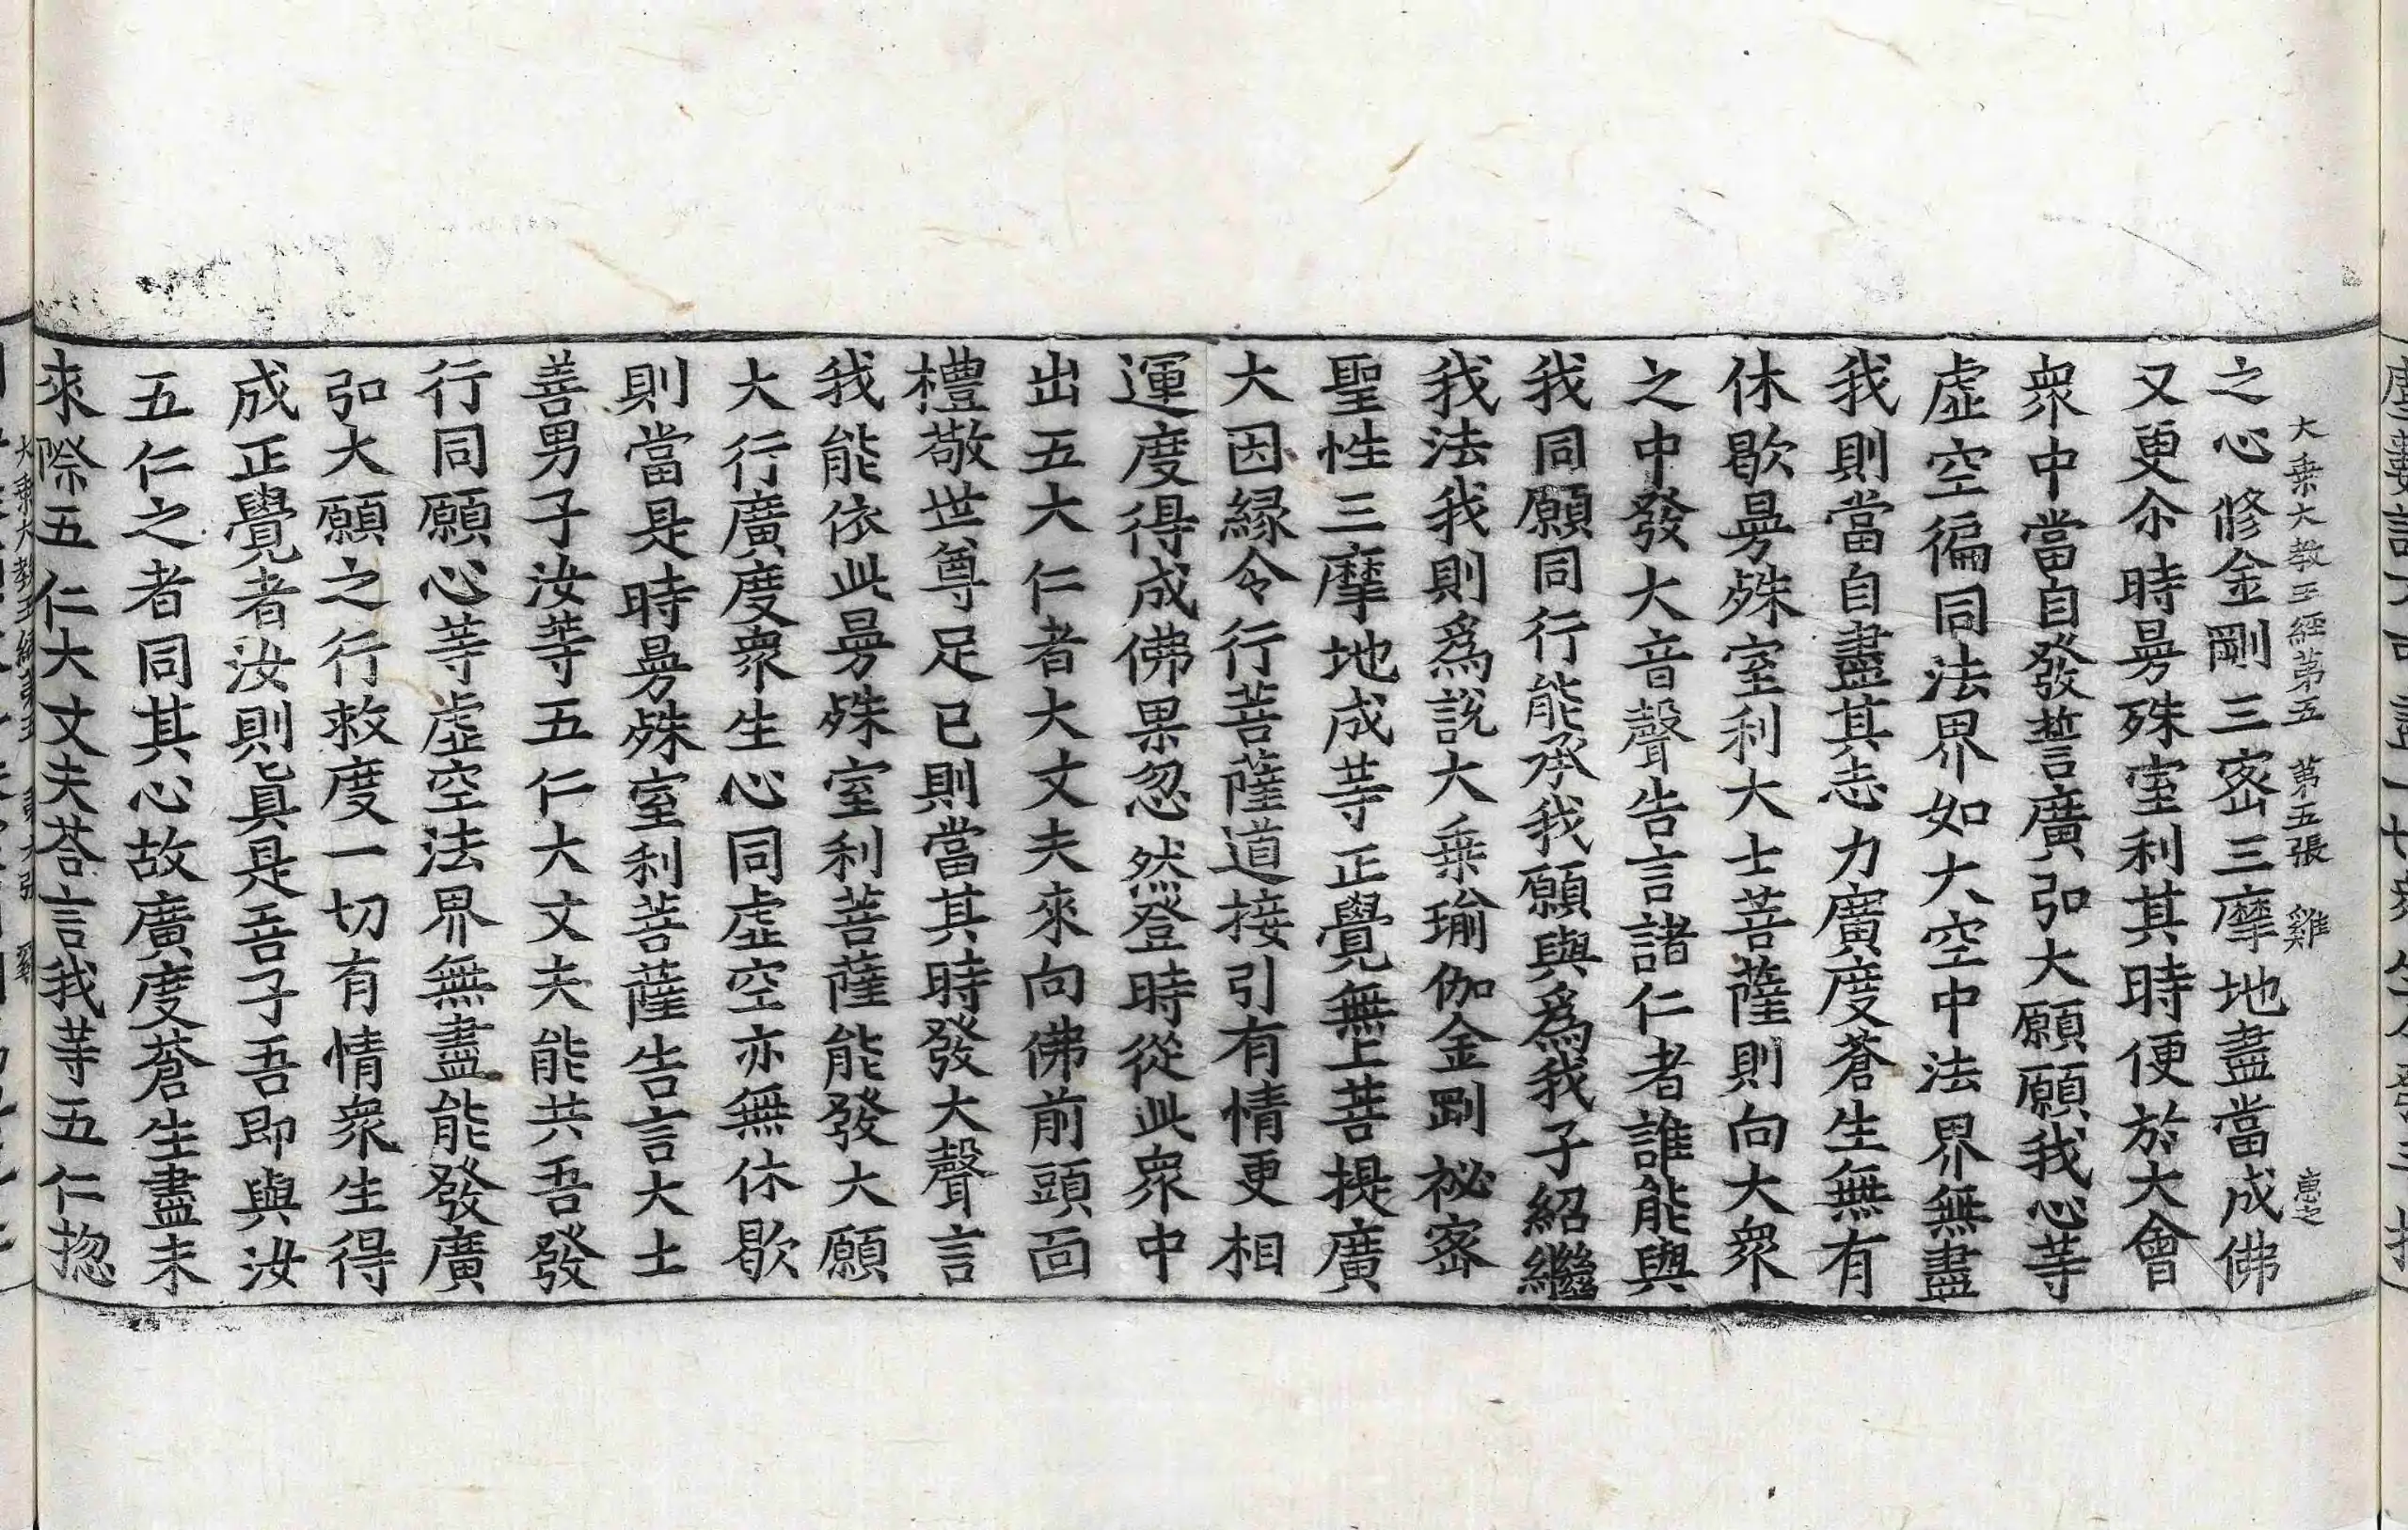 大乗大教王經第五　第五張　雞　惠之
之心修金剛三宻三摩地盡當成佛
又更尒時曼殊室利其時便於大會
衆中當自發誓廣弘大願願我心䓁
虚空徧同法界如大空中法界無盡
我則當自盡其志力廣度蒼生無有
休歇曼殊室利大士菩薩則向大衆
之中發大音聲告言諸仁者誰能與
我同願同行能承我願與爲我子紹繼
我法我則爲說大乗瑜伽金剛祕宻
聖性三摩地成䓁正覺無上菩提廣
大因縁令行菩薩道接引有情更相
運度得成佛果忽然登時從此衆中
出五大仁者大丈夫來向佛前頭面
禮敬世尊足已則當其時發大聲言
我能依此曼殊室利菩薩能發大願
大行廣度衆生心同虚空亦無休歇
則當是時曼殊室利菩薩告言大士
善男子汝䓁五仁大丈夫能共吾發
行同願心䓁虚空法界無盡能發廣
弘大願之行救度一切有情衆生得
成正覺者汝則眞是吾子吾即與汝
五仁之者同其心故廣度蒼生盡未
來際五仁大丈夫荅言我䓁五仁揔